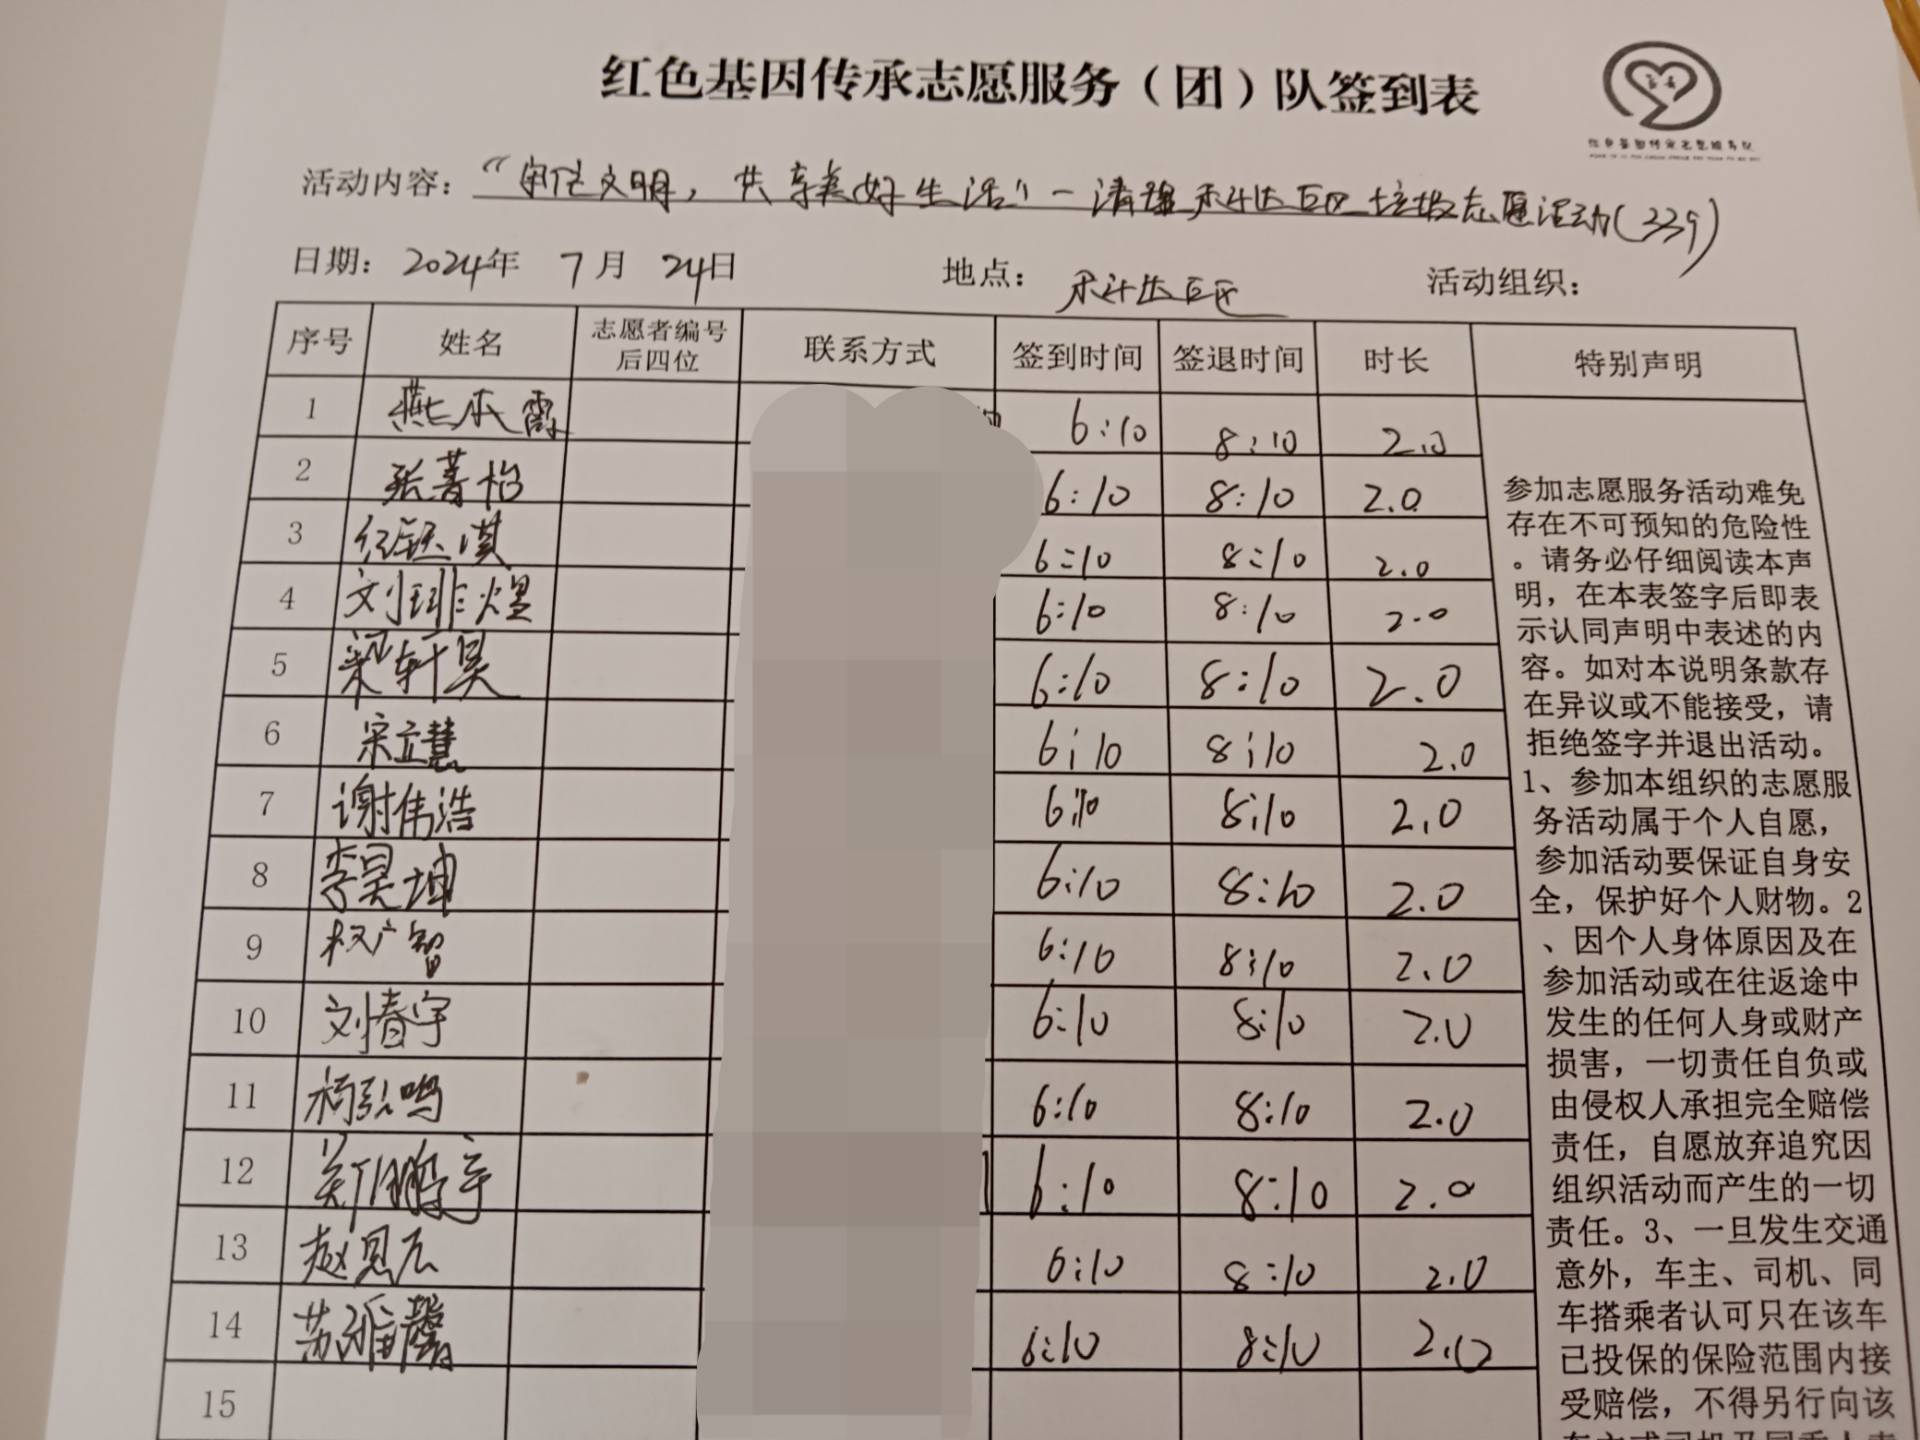 红色基因传承志愿服务（团）队签到表
活动内容：“守住文明，共享美好生活”一清理 垃圾志愿活动(339)
日期：2024年 7月 24日 地点： 活动组织：
序号 姓名 志愿者编号后四位 联系方式 签到时间 签退时间 时长 特别声明
1 燕木霞 6:10 8:10 2.0
2 张菁怡 6:10 8:10 2.0
3 任钰淇 6:10 8:10 2.0
4 刘琲煜 6:10 8:10 2.0
5 梁轩昊 6:10 8:10 2.0
6 宋立慧 6:10 8:10 2.0
7 谢伟浩 6:10 8:10 2.0
8 李昊坤 6:10 8:10 2.0
9 权广智 6:10 8:10 2.0
10 刘春宇 6:10 8:10 2.0
11 杨弘鸣 6:10 8:10 2.0
12 关鹏宇 6:10 8:10 2.0
13 赵思 6:10 8:10 2.0
14 苏雅馨 6:10 8:10 2.0
15
参加志愿服务活动难免
存在不可预知的危险性
。请务必仔细阅读本声
明，在本表签字后即表
示认同声明中表述的内
容。如对本说明条款存
在异议或不能接受，请
拒绝签字并退出活动。
1、参加本组织的志愿服
务活动属于个人自愿，
参加活动要保证自身安
全，保护好个人财物。2
、因个人身体原因及在
参加活动或在往返途中
发生的任何人身或财产
损害，一切责任自负或
由侵权人承担完全赔偿
责任，自愿放弃追究因
组织活动而产生的一切
责任。3、一旦发生交通
意外，车主、司机、同
车搭乘者认可只在该车
已投保的保险范围内接
受赔偿，不得另行向该